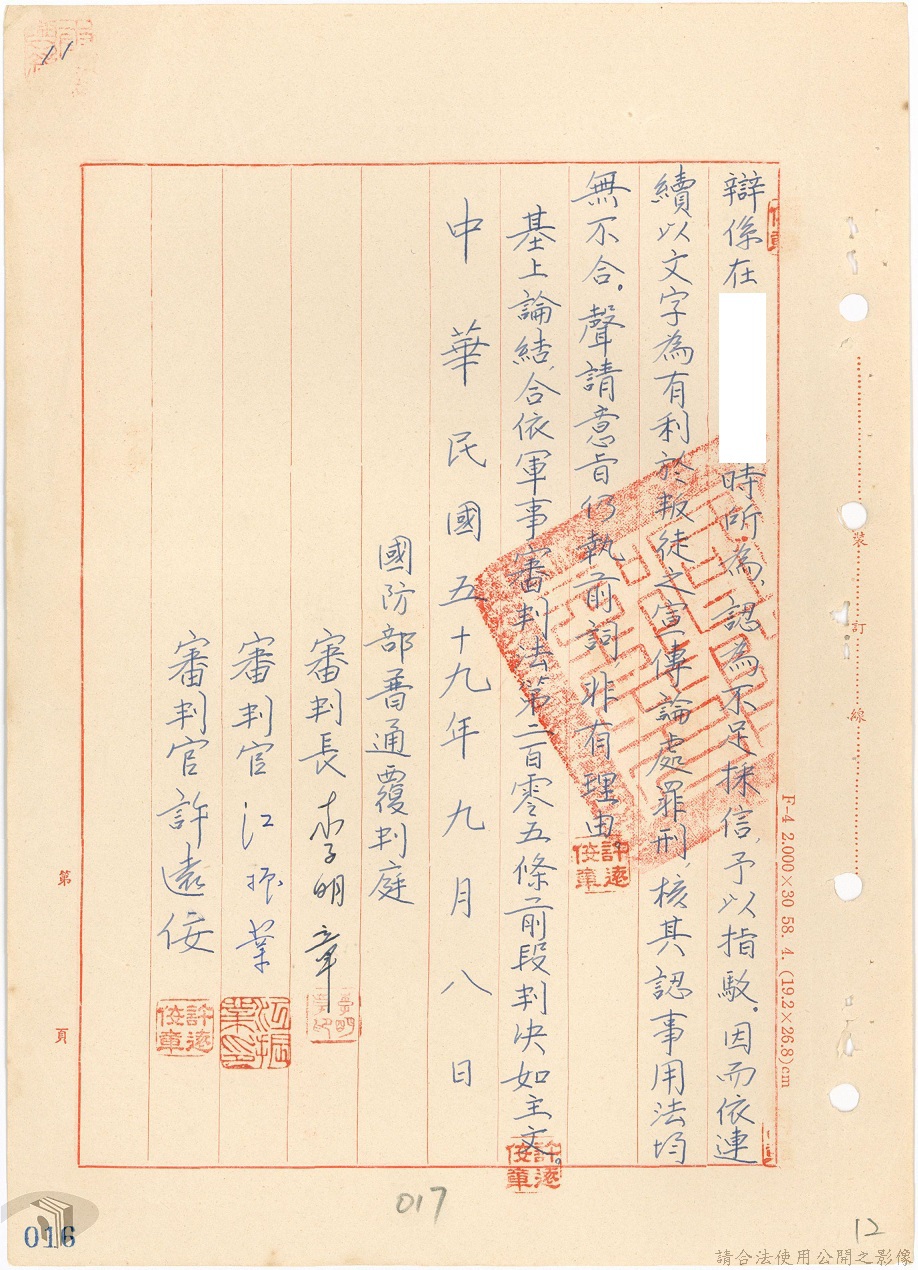 辯係在
時所為，認為不足採信，予以指駁。因而依連
續以文字為有利於叛徒之宣傳論處罪刑，核其認事用法均
無不合。聲請意旨仍執前詞，非有理由
基上論結，合依軍事審判法第二百零五條前段判決如主文。
中華民國五十九年九月八日
國防部普通覆判庭
審判長 李明章
審判官 江振業
審判官 許遠俀
許遠俀章
許遠俀章
江振業印
許遠俀章
裝訂線
F-4 2.000×30 58. 4. (19.2×26.8)cm
第 頁
11
017
12
016
請合法使用公開之影像